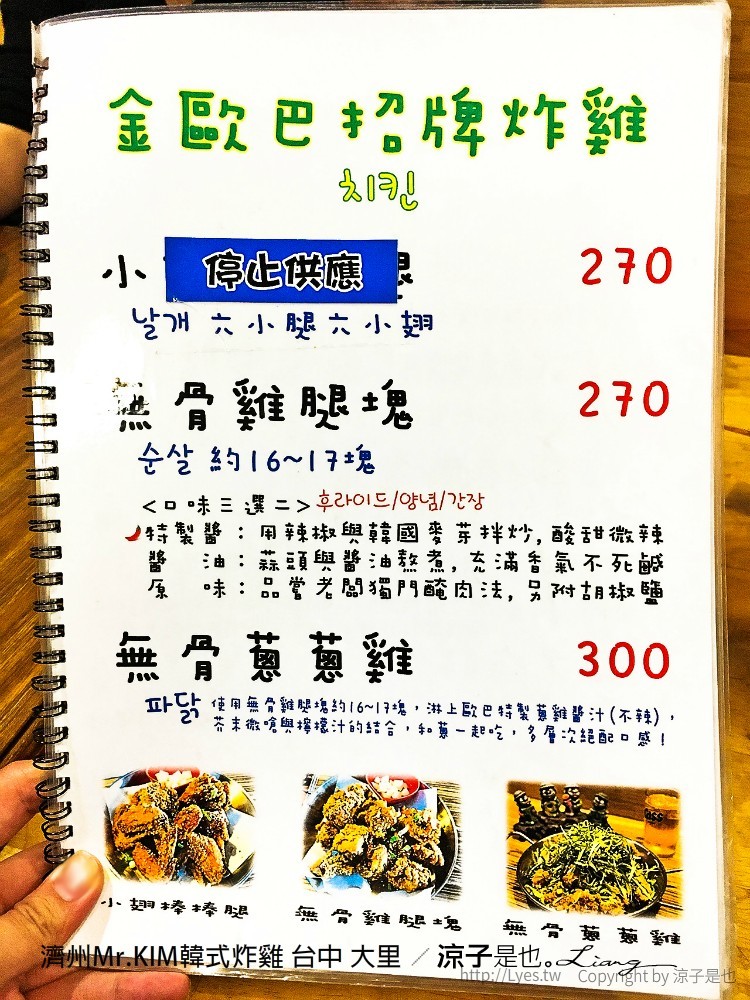 金歐巴招牌炸雞
치킨
小 停止供應 腿 270
날개 六小腿六小翅
無骨雞腿塊 270
순살 約16~17塊
<口味三選二>후라이드/양념/간장
特製醬：用辣椒與韓國麥芽拌炒，酸甜微辣
醬油：蒜頭與醬油熬煮，充滿香氣不死鹹
原味：品嘗老闆獨門醃肉法，另附胡椒鹽
無骨蔥蔥雞 300
파닭 使用無骨雞腿塊約16~17塊，淋上歐巴特製蔥雞醬汁(不辣)，
芥末微嗆與檸檬汁的結合，和蔥一起吃，多層次絕配口感！
小翅棒棒腿
無骨雞腿塊
無骨蔥蔥雞
濟州Mr.KIM韓式炸雞 台中 大里 ／ 涼子是也。Liang
http://Lyes.tw Copyright by 涼子是也